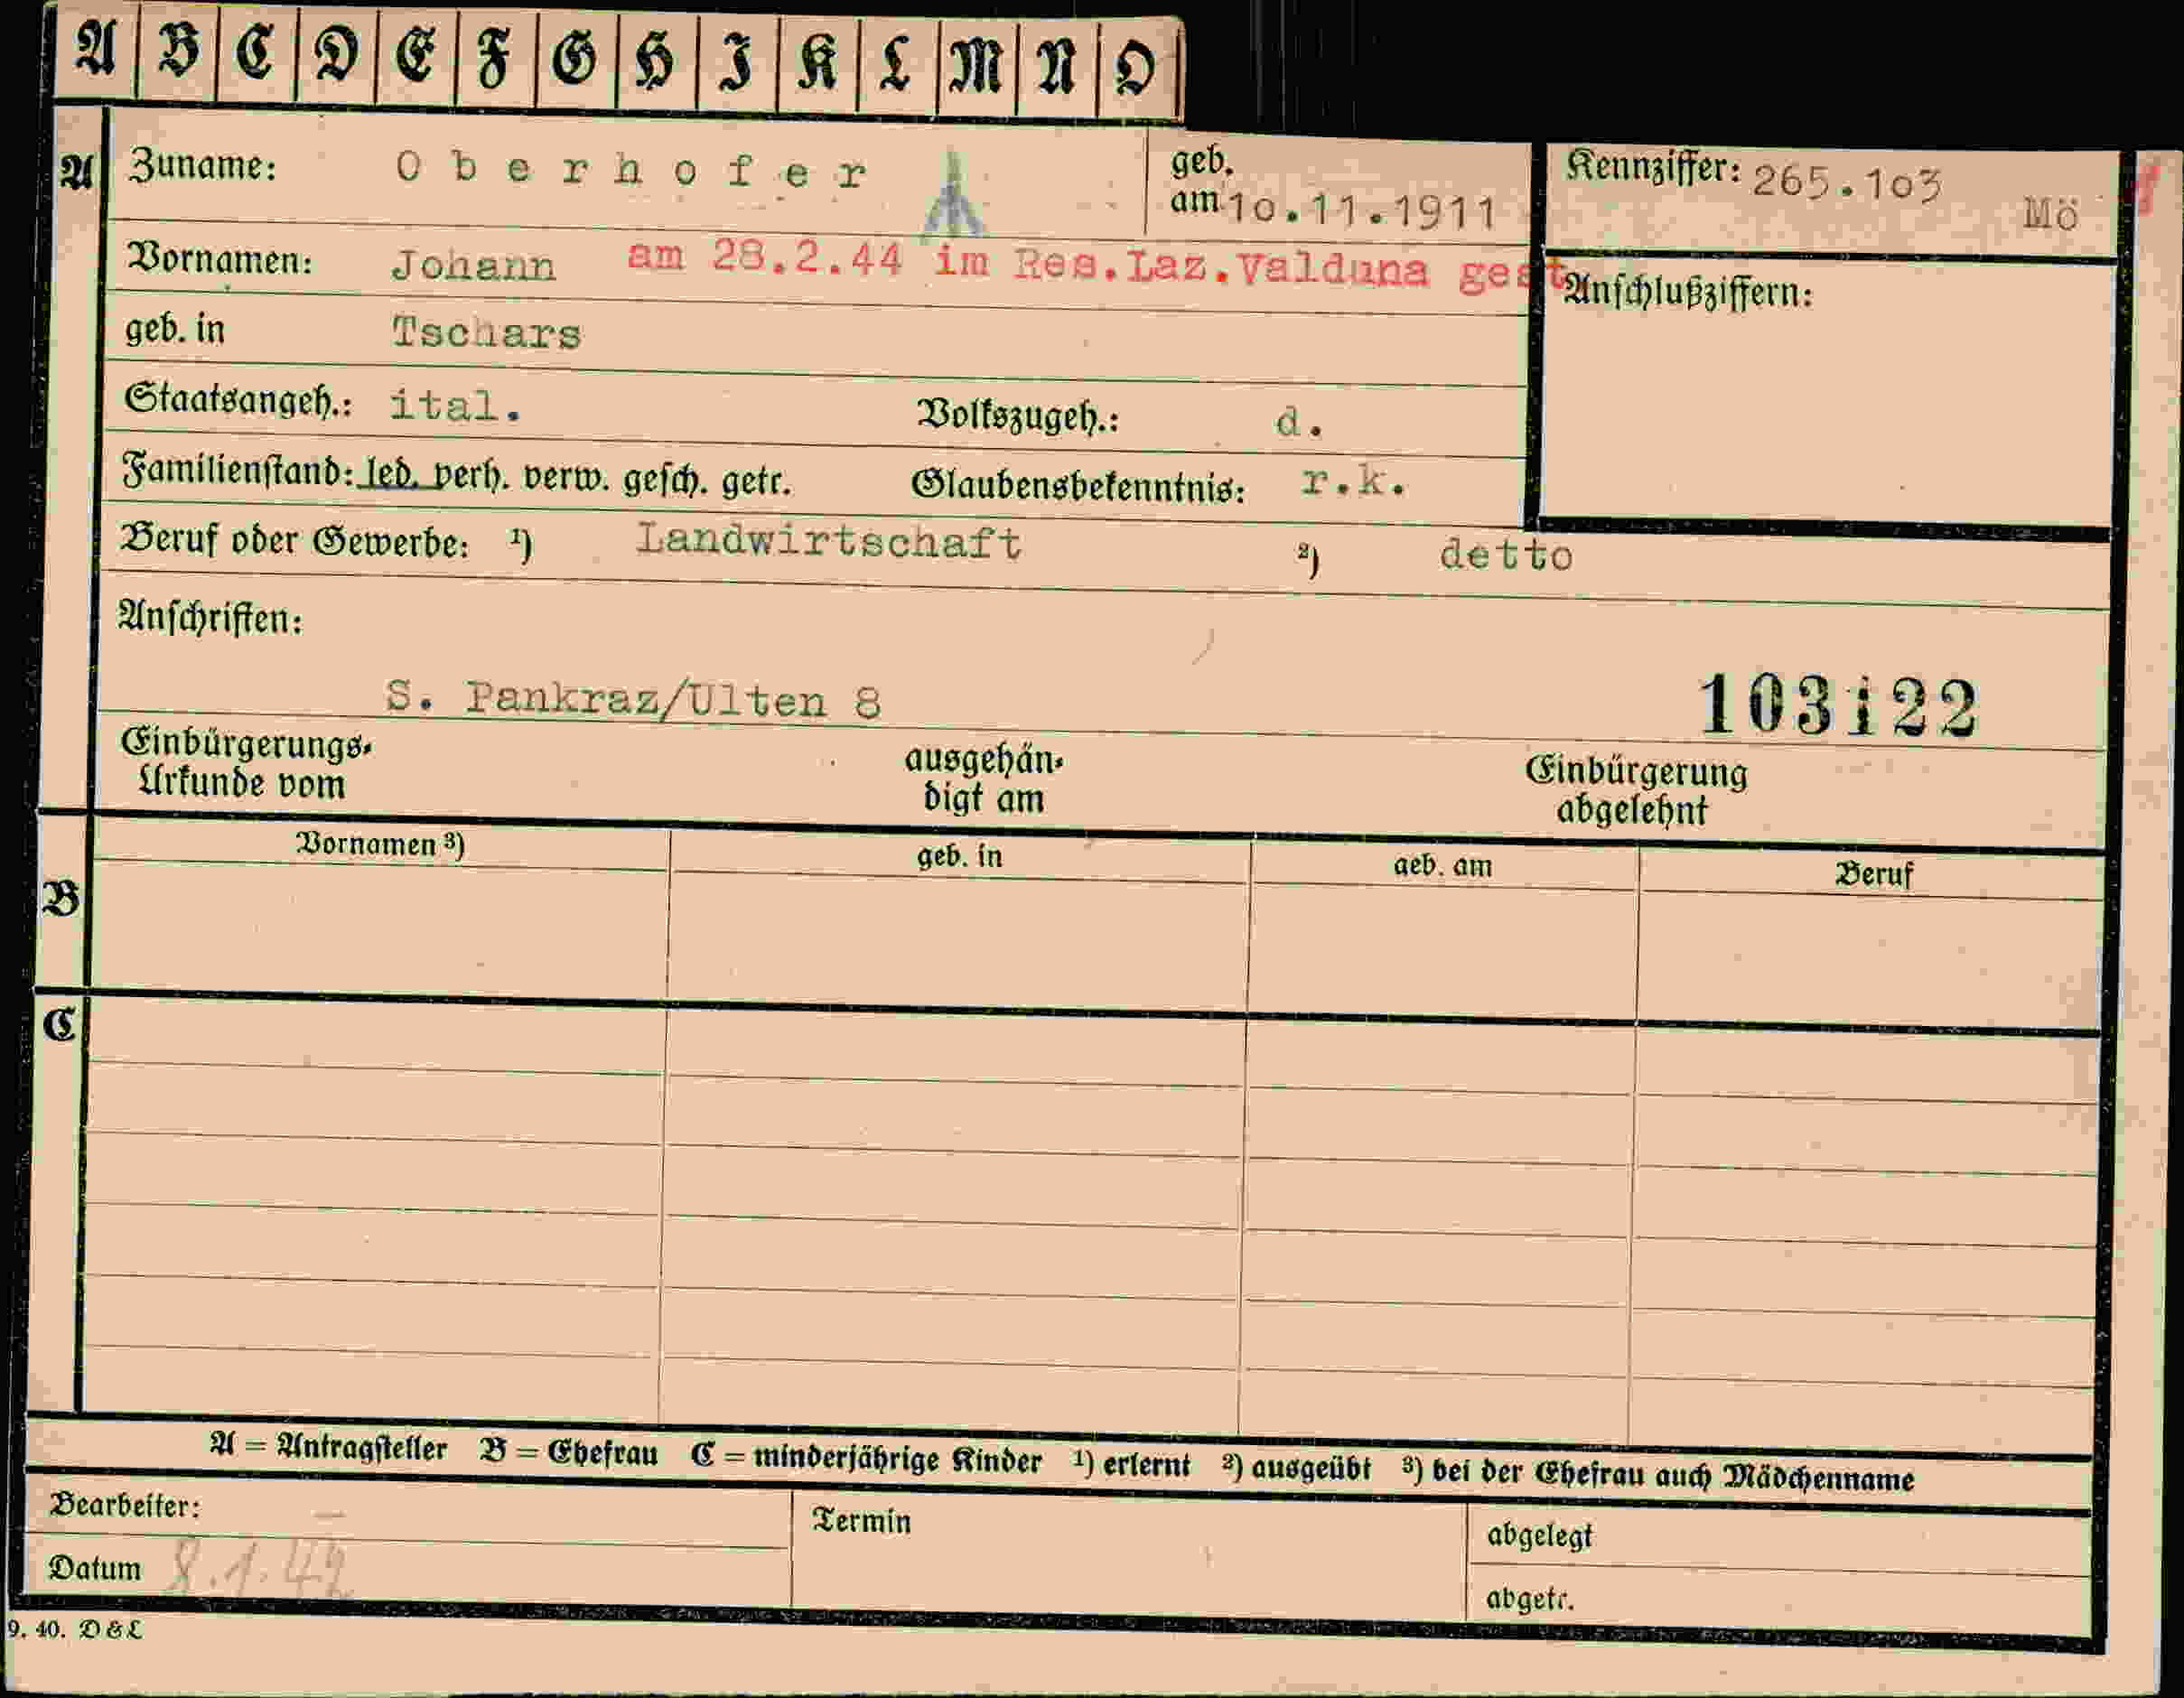 A B C D E F G H I K L M N O
A Zuname: Oberhofer geb. am 10.11.1911 Kennziffer: 265.103 Mö
Vornamen: Johann am 28.2.44 im Res.Laz.Valduna gest Anschlußziffern:
geb. in Tschars
Staatsangeh.: ital. Volkszugeh.: d.
Familienstand: led. verh. verw. gesch. getr. Glaubensbekenntnis: r.k.
Beruf oder Gewerbe: ¹) Landwirtschaft ²) detto
Anschriften:
S. Pankraz/Ulten 8 103122
Einbürgerungs-
Urkunde vom
ausgehän-
digt am
Einbürgerung
abgelehnt
Vornamen ³) geb. in geb. am Beruf
B
C
A = Antragsteller B = Ehefrau C = minderjährige Kinder ¹) erlernt ²) ausgeübt ³) bei der Ehefrau auch Mädchenname
Bearbeiter: Termin abgelegt
Datum 8.1.42 abgetr.
9. 40. D & L